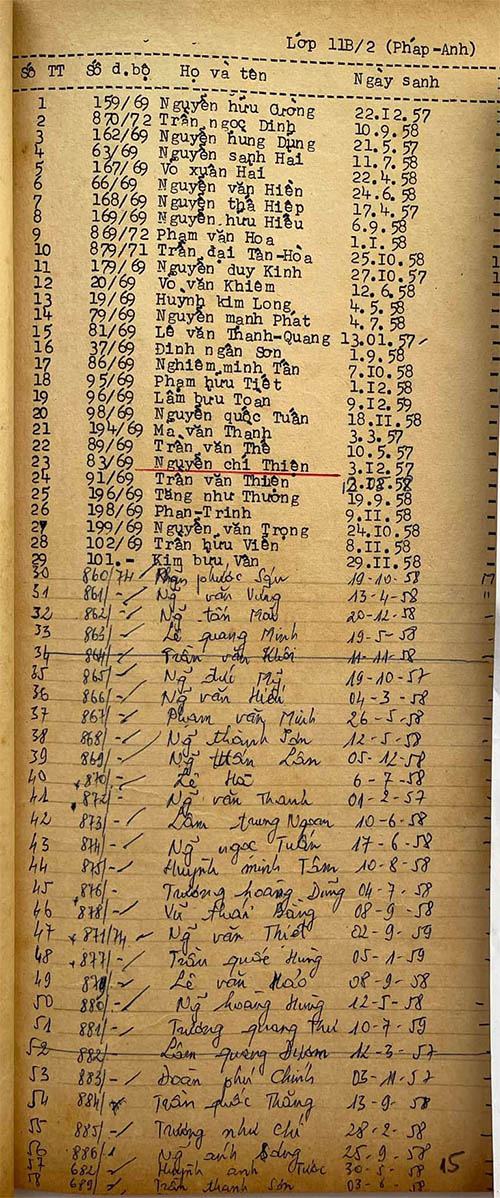 Lớp 11B/2 (Pháp-Anh)
Số TT Số d.bộ Họ và tên Ngày sanh
1 159/69 Nguyễn hữu Cường 22.12.57
2 870/72 Trần ngọc Dinh 10.9.58
3 162/69 Nguyễn hùng Dũng 21.5.57
4 63/69 Nguyễn sanh Hai 11.7.58
5 167/69 Võ xuân Hai 22.4.58
6 66/69 Nguyễn văn Hiền 24.6.58
7 168/69 Nguyễn thá Hiệp 17.4.57
8 169/69 Nguyễn hữu Hiếu 6.9.58
9 869/72 Phạm văn Hoa 1.1.58
10 879/71 Trần đại Tân-Hòa 25.10.58
11 179/69 Nguyễn duy Kinh 27.10.57
12 20/69 Võ văn Khiêm 12.6.58
13 19/69 Huỳnh kim Long 4.5.58
14 79/69 Nguyễn mạnh Phát 4.7.58
15 81/69 Lê văn Thanh-Quang 13.01.57
16 37/69 Đinh ngân Sơn 1.9.58
17 86/69 Nghiêm minh Tân 7.10.58
18 95/69 Phạm hữu Tiết 1.12.58
19 96/69 Lâm bửu Toan 9.12.59
20 98/69 Nguyễn quốc Tuấn 18.11.58
21 194/69 Ma văn Thanh 3.3.57
22 89/69 Trần văn Thể 10.5.57
23 83/69 Nguyễn chí Thiện 3.12.57
24 91/69 Trần văn Thiên 12.08.58
25 196/69 Tăng như Thường 19.9.58
26 198/69 Phan-Trinh 9.11.58
27 199/69 Nguyễn văn Trọng 24.10.58
28 102/69 Trần hữu Viên 8.11.58
29 101.- Kim bửu Vân 29.11.58
30 860/74 Phan phước Sáu 19-10-58
31 861/- Ng̃ văn Vững 13-4-58
32 862/- Ng̃ tấn Mai 20-12-58
33 863/- Lê quang Minh 19-5-58
34 864/- Trần văn Khôi 11-11-58
35 865/- Ng̃ đức Mỹ 19-10-57
36 866/- Ng̃ văn Hiếu 04-3-58
37 867/- Phạm văn Minh 26-5-58
38 868/- Ng̃ thành Sơn 12-5-58
39 869/- Ng̃ Lâm 05-12-58
40 870/- Lê Hà 6-7-58
41 872/- Ng̃ văn Thanh 01-2-57
42 873/- Lâm trung Ngoan 10-6-58
43 874/- Ng̃ ngọc Tuấn 17-6-58
44 875/- Huỳnh minh Tâm 10-8-58
45 876/- Trương hoàng Dũng 04-7-58
46 878/- Vũ thái Bằng 08-9-58
47 871/74 Ng̃ văn Thiết 02-9-59
48 877/- Trần quốc Hùng 05-1-59
49 879/- Lê văn Hảo 08-9-58
50 880/- Ng̃ hoàng Hưng 12-5-58
51 881/- Trương quang Thư 10-7-59
52 882/- Lâm quang 12-3-57
53 883/- Đoàn phú Chính 03-11-57
54 884/- Trần quốc Thắng 13-9-58
55 885/- Trương như Chí 28-2-58
56 886/- Ng̃ anh 25-9-58
57 682/- Huỳnh anh Tước 30-5-58 15
58 689/- Trần thanh Sơn 03-6-58